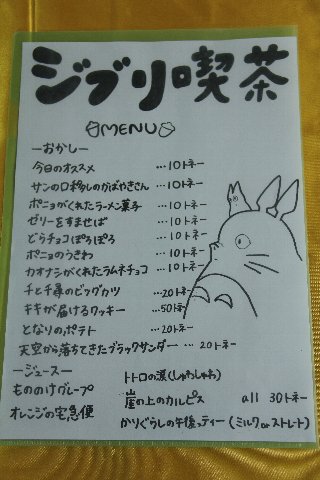 ジブリ喫茶
MENU
ーおかしー
今日のオススメ …10トネー
サンの口移しのかばやきさん …10トネー
ポニョがくれたラーメン菓子 …10トネー
ゼリーをすませば …10トネー
どらチョコぽろぽろ …10トネー
ポニョのうきわ …10トネー
カオナシがくれたラムネチョコ …10トネー
千と千尋のビッグカツ …20トネー
キキが届けるクッキー …50トネー
となりのポテト …20トネー
天空から落ちてきたブラックサンダー … 20トネー
ージュースー
もののけグレープ
オレンジの宅急便
トトロの涙(しゅわしゅわ)
崖の上のカルピス all 30トネー
かりぐらしの午後ッティー(ミルクorストレート)